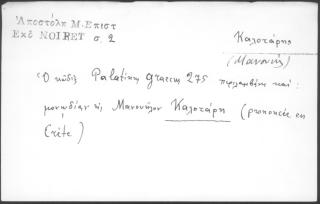 Ἀποστόλη Μ. Επιστ
Εκδ NOIRET σ. 2
Καλοτάρης
(Μανουήλ)
Ὁ κώδιξ Palatinus graecus 275 περιλαμβάνει καί :
μονωδίαν εἰς Μανουήλον Καλοτάρη (prononcée en
Crète)